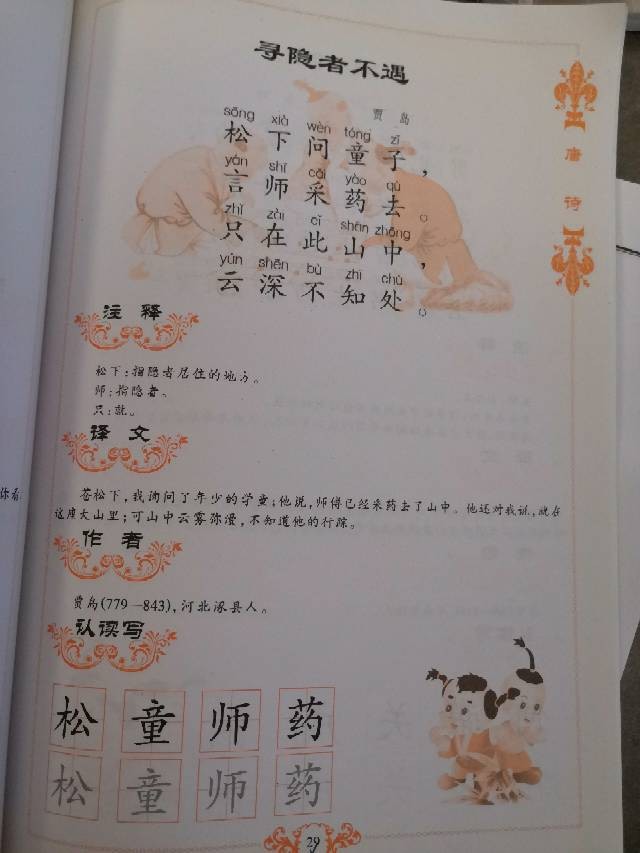 寻隐者不遇
贾岛
sōng xià wèn tóng zǐ
松下问童子，
yán shī cǎi yào qù
言师采药去。
zhǐ zài cǐ shān zhōng
只在此山中，
yún shēn bù zhī chù
云深不知处。
唐诗
注释
松下：指隐者居住的地方。
师：指隐者。
只：就。
译文
苍松下，我询问了年少的学童；他说，师傅已经采药去了山中。他还对我说，就在
这座大山里；可山中云雾弥漫，不知道他的行踪。
作者
贾岛(779—843)，河北涿县人。
认读写
松 童 师 药
松 童 师 药
29
你看